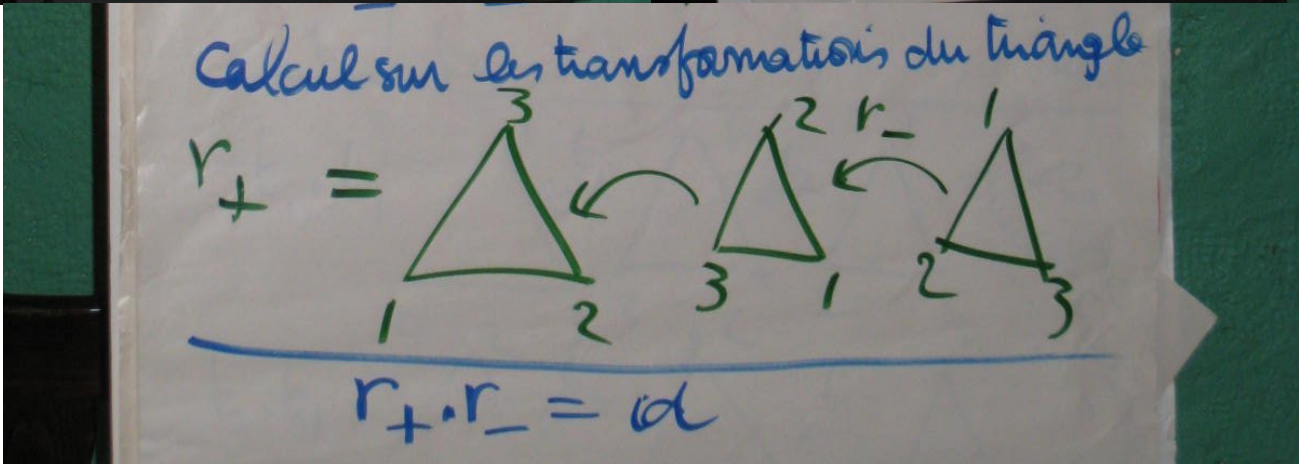 Calcul sur les transformations du triangle
3 2 r_ 1
r+ =
1 2 3 1 2 3
r+ . r_ = id